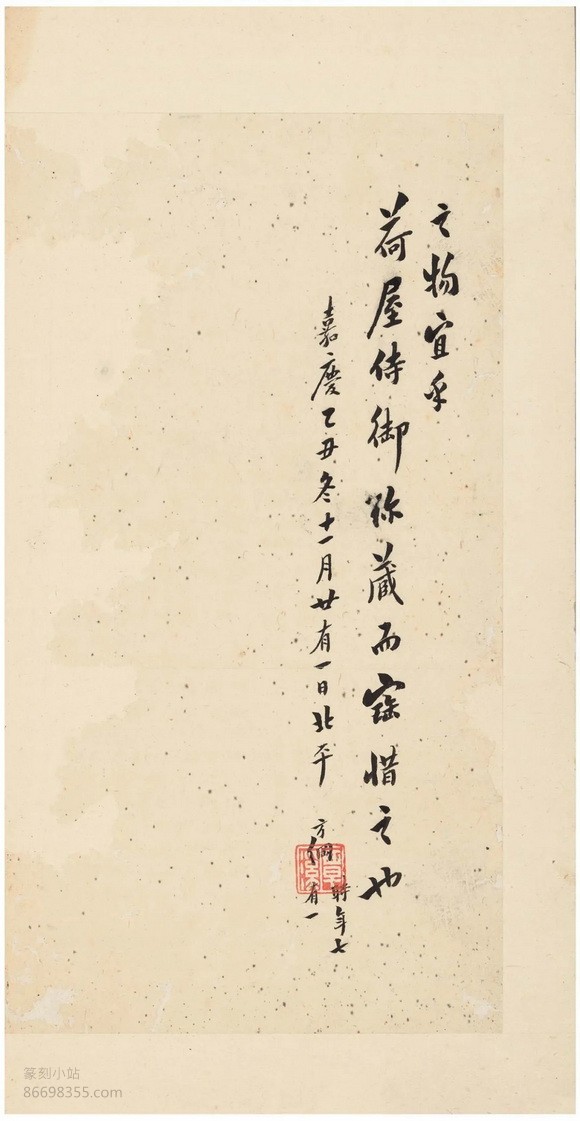 之物宜乎
荷屋侍御珍藏而寶惜之也
嘉慶乙丑冬十一月廿有一日北平
方綱
時年七
有一
覃谿
篆刻小站
86698355.com